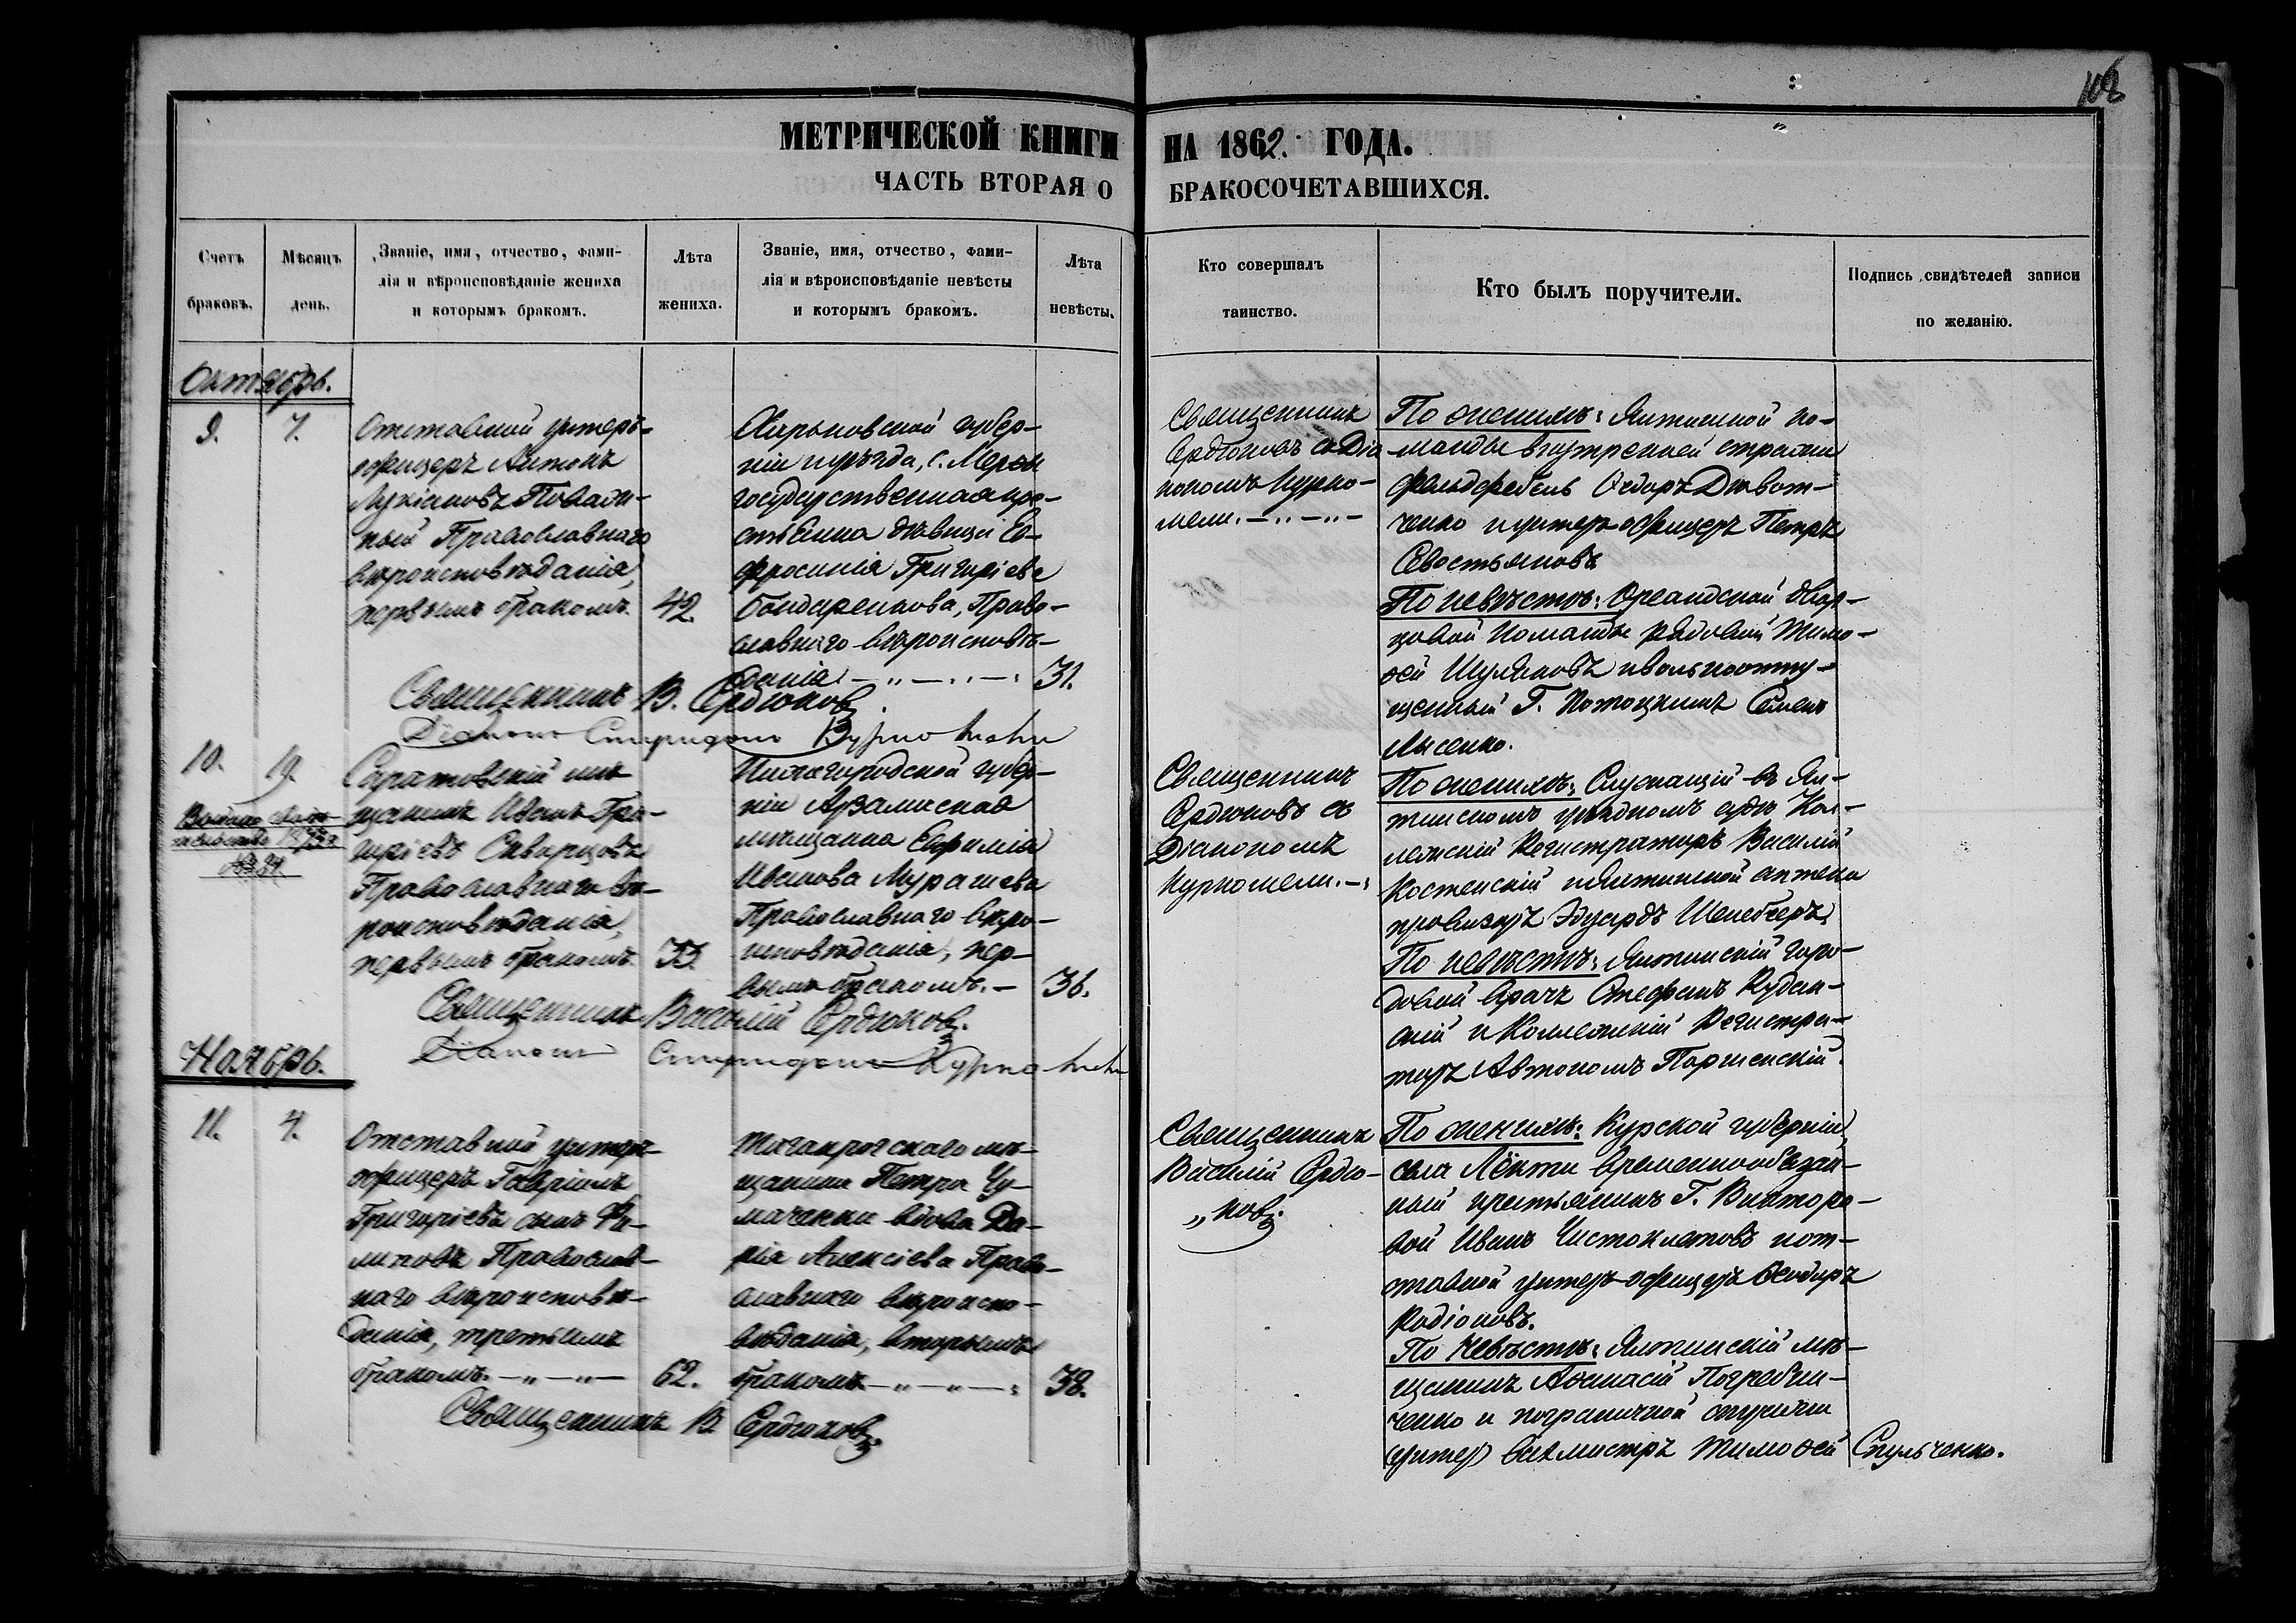 102
МЕТРИЧЕСКОЙ КНИГИ НА 1862. ГОДА.
ЧАСТЬ ВТОРАЯ О БРАКОСОЧЕТАВШИХСЯ.
Счетъ
браковъ.
Мѣсяцъ
день.
Званіе, имя, отчество, фами-
лія и вѣроисповѣданіе жениха
и которымъ бракомъ.
Лѣта
жениха.
Званіе, имя, отчество, фами-
лія и вѣроисповѣданіе невѣсты
и которымъ бракомъ.
Лѣта
невѣсты.
Кто совершалъ
таинство.
Кто былъ поручители.
Подпись свидѣтелей записи
по желанію.
Октябрь.
9.
7.
Отставной унтеръ-
офицеръ Антонъ
Лукіановъ
Православнаго
вѣроисповѣданія,
первымъ бракомъ.
42.
Харьковской губер-
ніи и уѣзда, с.
государственная кре-
стьянка дѣвица Ев-
фросинія Григоріева
Бондаренкова, Право-
славнаго вѣроисповѣ-
данія. — „ — „ —
31.
Священникъ
Сердюковъ съ Діа-
кономъ Курко-
мели. — „ — „ —
По женихѣ: Ялтинской ко-
манды внутренней стражи
фельдфебель Ѳедоръ
и унтеръ-офицеръ Петръ
Севостьяновъ
По невѣстѣ: Ореандской двор-
цовой команды рядовой Тимо-
ѳей и вольноотпу-
щенный Г. Потоцкимъ Семенъ
Лысенко.
Священникъ В. Сердюковъ.
Діаконъ Спиридонъ Куркомели
10.
19.
Саратовскій мѣ-
щанинъ Иванъ Гри-
горіевъ Скварцовъ
Православнаго вѣ-
роисповѣданія,
первымъ бракомъ.
33.
Нижегородской губер-
ніи Арзамаская
мѣщанка Евфимія
Иванова Мурашева
Православнаго вѣро-
исповѣданія, пер-
вымъ бракомъ. —
36.
Священникъ
Сердюковъ съ
Діакономъ
Куркомели. —
По женихѣ: Служащій въ Ял-
тинскомъ уѣздномъ судѣ Кол-
лежскій Регистраторъ Василій
Костенскій и Ялтинской аптеки
провизоръ Эдуардъ
По невѣстѣ: Ялтинскій горо-
довой врачъ Стефанъ
и Коллежскій Регистра-
торъ Автономъ
Священникъ Василій Сердюковъ.
Діаконъ Спиридонъ Куркомели
Ноябрь.
11.
4.
Отставной унтеръ-
офицеръ Гавріилъ
Григоріевъ сынъ Фи-
липовъ Православ-
наго вѣроисповѣ-
данія, третьимъ
бракомъ. — „ — „ —
62.
Таганрогскаго мѣ-
щанина Петра Чу-
маченки вдова Да-
рія Алексіева Право-
славнаго вѣроиспо-
вѣданія, вторымъ
бракомъ. — „ — „ —
38.
Священникъ
Василій Сердю-
„ковъ.
По женихѣ: Курской губерніи,
села Локти временнообязан-
ный крестьянинъ Г. Викторо-
вой Иванъ Чистоклетовъ и от-
ставной унтеръ-офицеръ Ѳеодоръ
Родіоновъ.
По невѣстѣ: Ялтинскій мѣ-
щанинъ Аѳанасій Погребни-
ченко и пограничной стражи
(унтеръ) вахмистръ Тимоѳей Спульченко.
Священникъ В. Сердюковъ.